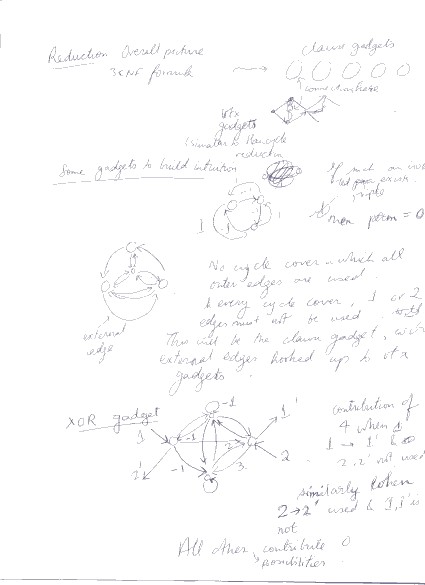 Reduction Overall picture
3CNF formula
clause gadgets
connections here
vtx
gadgets
(similar to Ham cycle
reduction
Some gadgets to build intuition
If such an
exists
triple
then perm = 0
1
-1
No cycle cover in which all
outer edges are used.
& every cycle cover, 1 or 2
edges must not be used
external
edge
This will be the clause gadget, with
external edges hooked up to vtx
gadgets.
XOR gadget
-1
1
1'
-1
2
2'
-1
3
2
contribution of
4 when 1
1 → 1' &
2, 2' not used
similarly when
2→2' used & 1, 1' is
not
All other contribute 0
possibilities